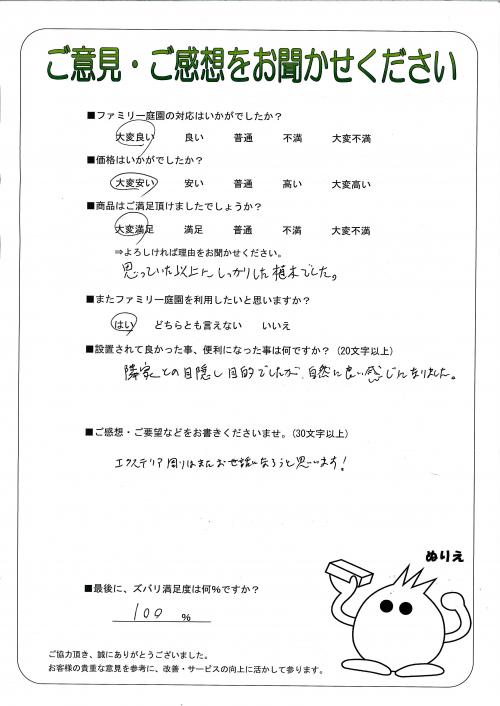 ご意見・ご感想をお聞かせください
■ファミリー庭園の対応はいかがでしたか？
大変良い 良い 普通 不満 大変不満
■価格はいかがでしたか？
大変安い 安い 普通 高い 大変高い
■商品はご満足頂けましたでしょうか？
大変満足 満足 普通 不満 大変不満
⇒よろしければ理由をお聞かせください。
思っていた以上に、しっかりした植木でした。
■またファミリー庭園を利用したいと思いますか？
はい どちらとも言えない いいえ
■設置されて良かった事、便利になった事は何ですか？（20文字以上）
隣家との目隠し目的でしたが、自然に良い感じになりました。
■ご感想・ご要望などをお書きくださいませ。（30文字以上）
エクステリア周りはまたお世話になろうと思います！
ぬりえ
■最後に、ズバリ満足度は何％ですか？
100 ％
ご協力頂き、誠にありがとうございました。
お客様の貴重な意見を参考に、改善・サービスの向上に活かして参ります。